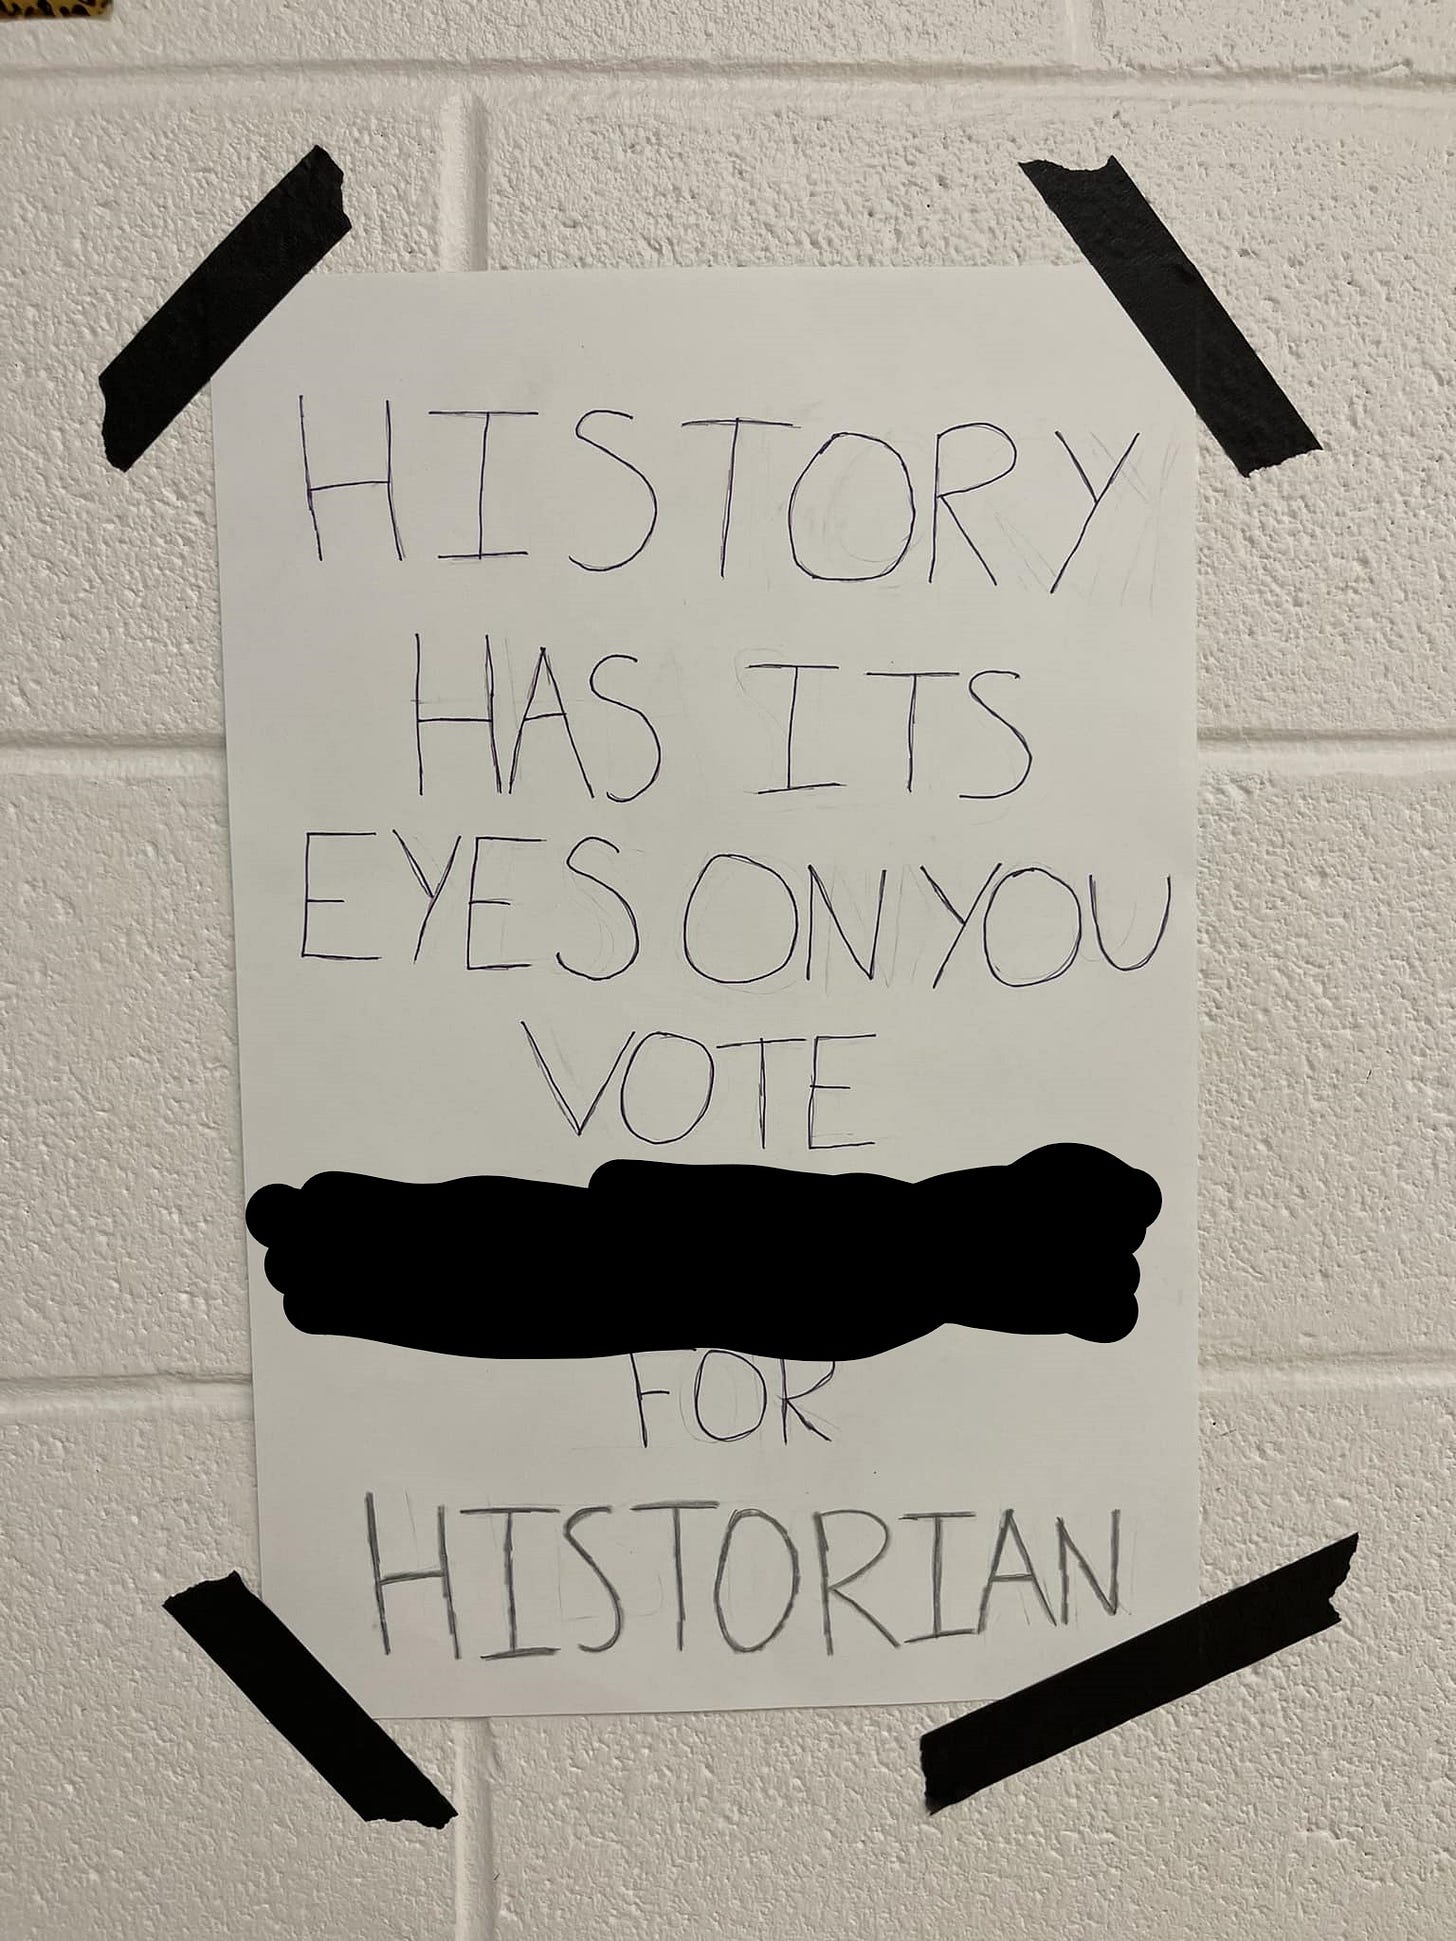 HISTORY
HAS ITS
EYES ON YOU
VOTE
FOR
HISTORIAN